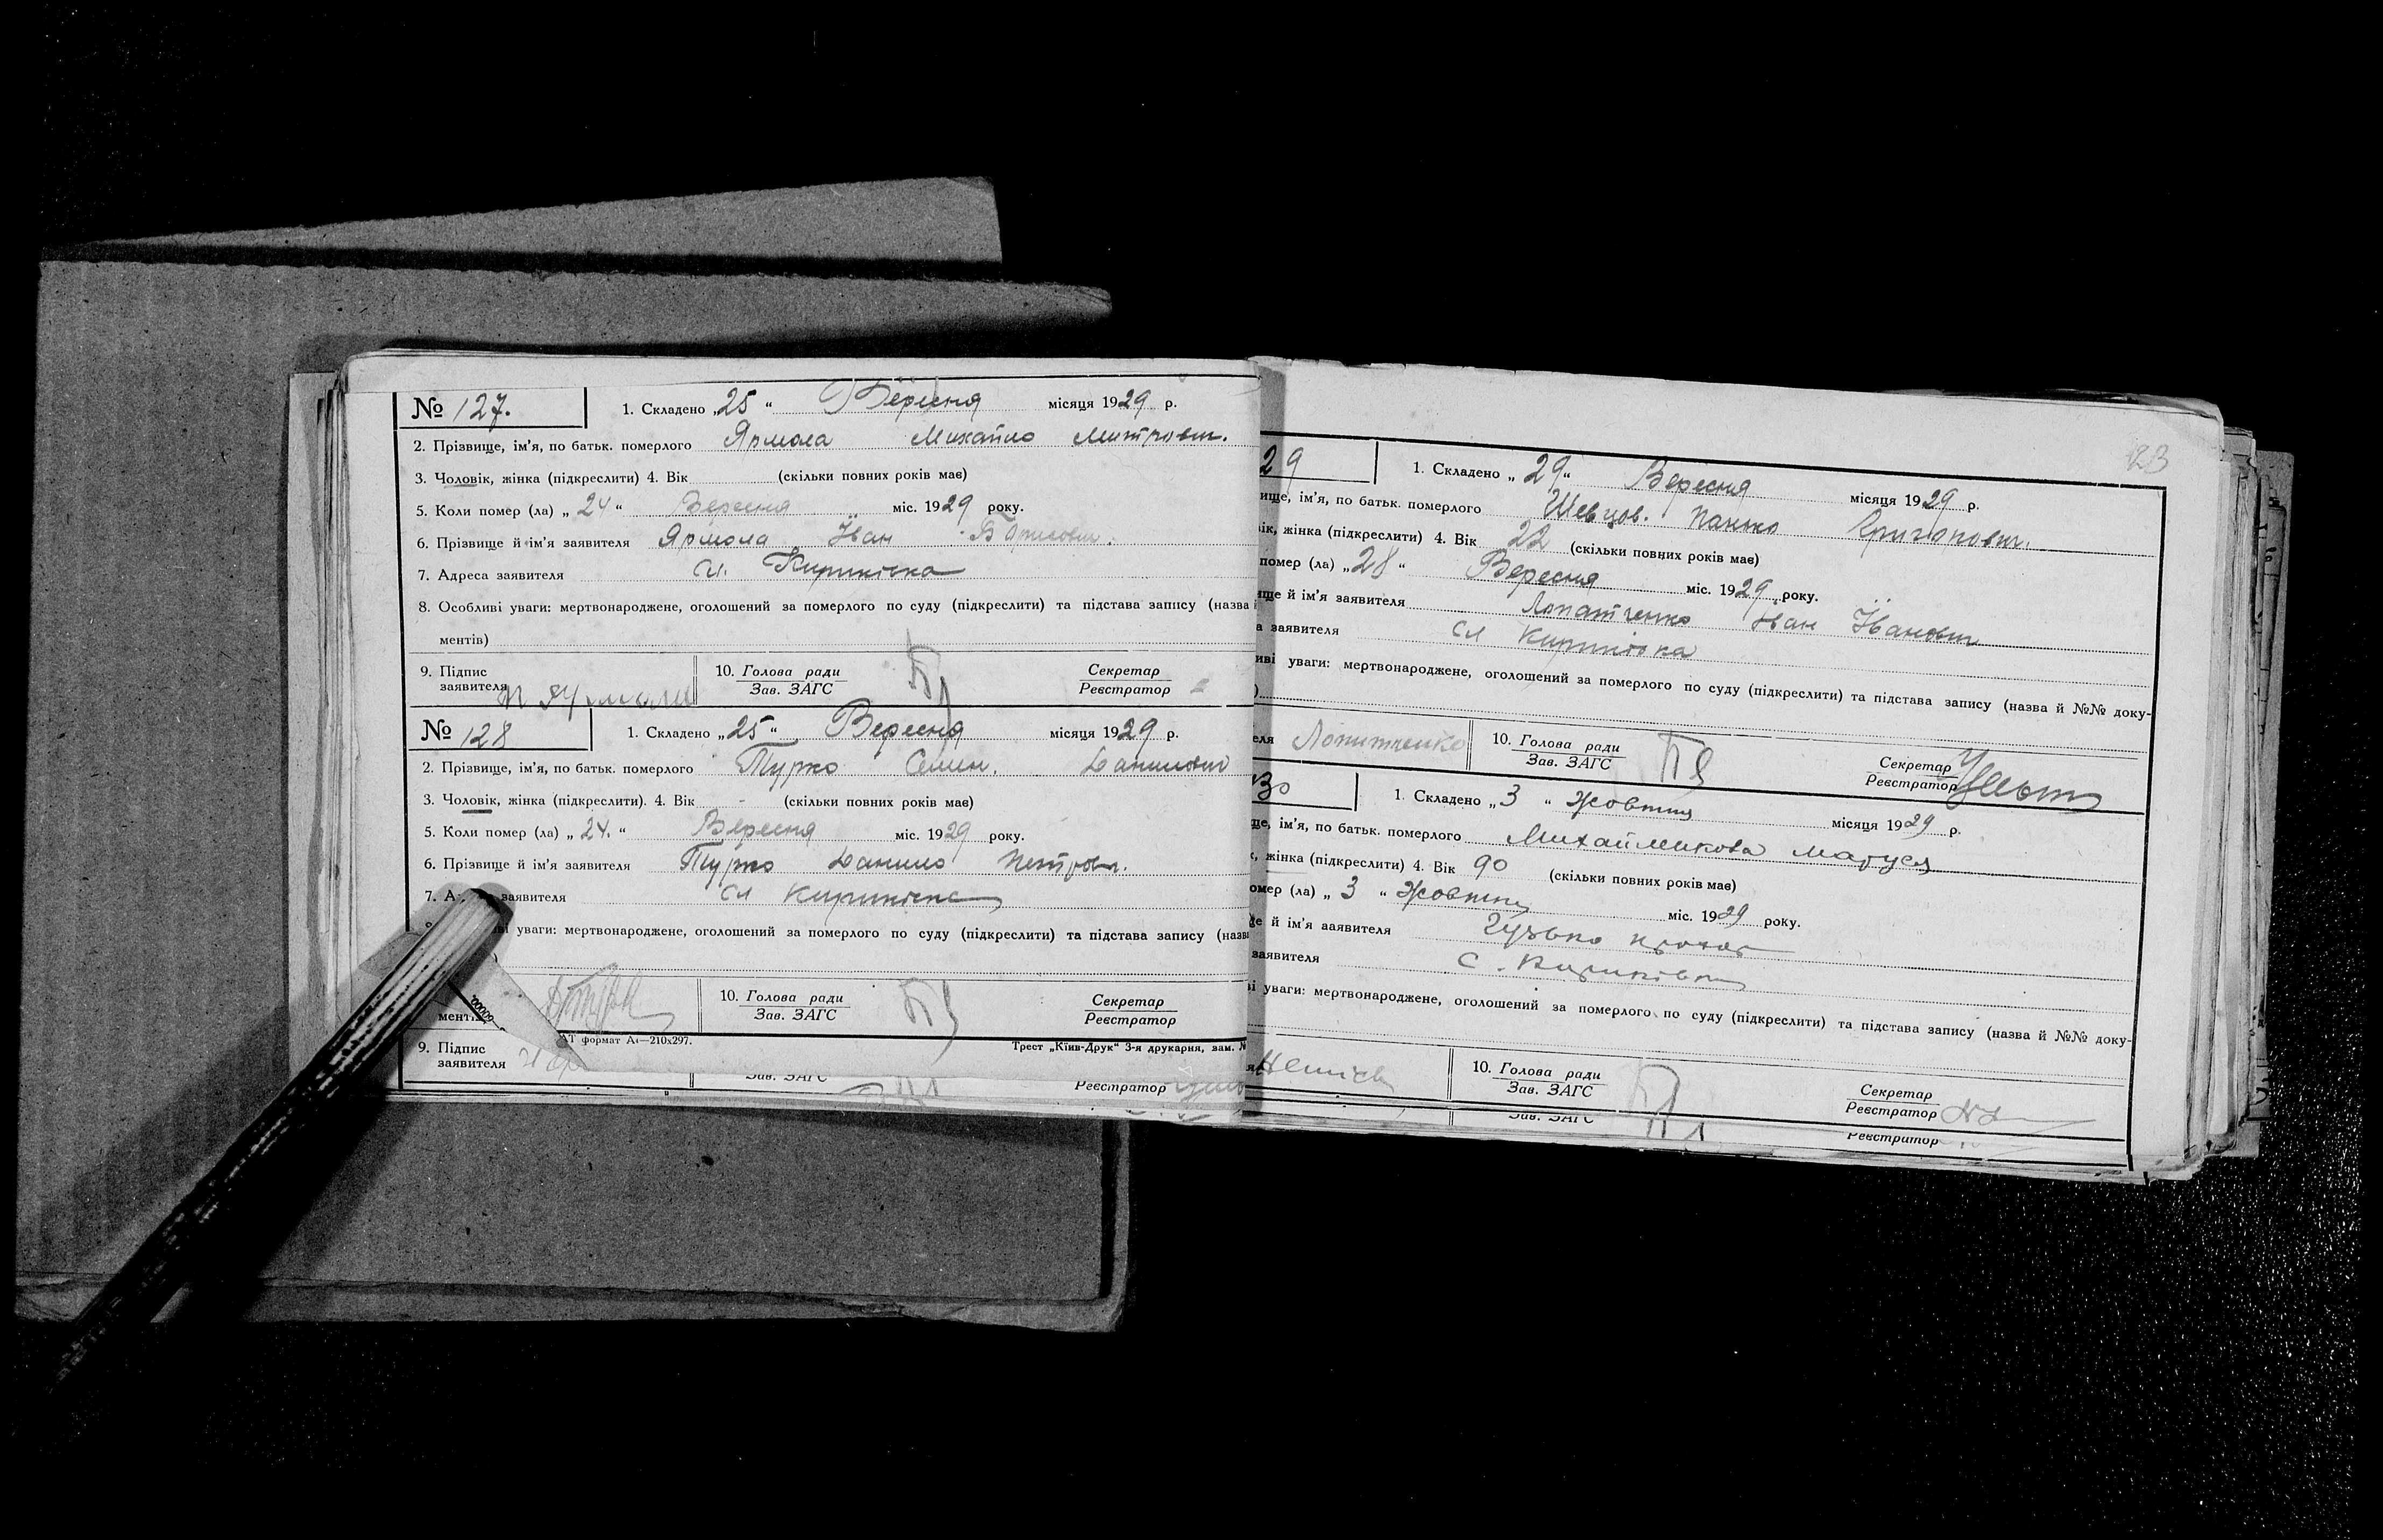 № 127. 1. Складено „25“ Вересня місяця 1929 р.
2. Прізвище, ім'я, по батьк. померлого Ярмола Михайло Митрович.
3. Чоловік, жінка (підкреслити) 4. Вік (скільки повних років має)
5. Коли помер (ла) „24“ Вересня міс. 1929 року.
6. Прізвище й ім'я заявителя Ярмола Іван
7. Адреса заявителя сл. Кириківка
8. Особливі уваги: мертвонароджене, оголошений за померлого по суду (підкреслити) та підстава запису (назва
ментів)
9. Підпис заявителя 10. Голова ради Зав. ЗАГС Секретар Реєстратор
№ 128 1. Складено „25“ Вересня місяця 1929 р.
2. Прізвище, ім'я, по батьк. померлого Турко Семен. Данилович
3. Чоловік, жінка (підкреслити). 4. Вік - (скільки повних років має)
5. Коли помер (ла) „24.“ Вересня міс. 1929 року.
6. Прізвище й ім'я заявителя Турко Данило Петров.
7. А заявителя сл Кириківка
ві уваги: мертвонароджене, оголошений за померлого по суду (підкреслити) та підстава запису (назва
10. Голова ради Зав. ЗАГС Секретар Реєстратор
мент
АТ формат А4—210х297. Трест „Київ-Друк“ 3-я друкарня, зам. №
9. Підпис заявителя
Зав. ЗАГС Реєстратор
123
29 1. Складено „29“ Вересня місяця 1929 р.
ище, ім'я, по батьк. померлого Шевцов. Панько Григорович.
ік, жінка (підкреслити) 4. Вік 22 (скільки повних років має)
помер (ла) „28“ Вересня міс. 1929 року.
ище й ім'я заявителя Лопатченко Іван Іванович
а заявителя сл Кириківка
иві уваги: мертвонароджене, оголошений за померлого по суду (підкреслити) та підстава запису (назва й №№ доку-
)
еля Лопатченко 10. Голова ради Зав. ЗАГС Секретар Реєстратор
30 1. Складено „3“ Жовтня місяця 1929 р.
ще, ім'я, по батьк. померлого Михайликова Маруся
к, жінка (підкреслити) 4. Вік 90 (скільки повних років має)
омер (ла) „3“ Жовтня міс. 1929 року.
ще й ім'я заявителя Гузько
заявителя с. Кириківка
ві уваги: мертвонароджене, оголошений за померлого по суду (підкреслити) та підстава запису (назва й №№ доку-
10. Голова ради Зав. ЗАГС Секретар Реєстратор
Зав. ЗАГС Реєстратор